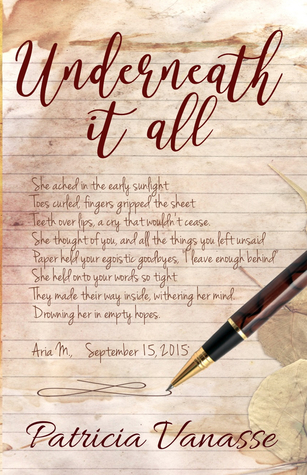 Underneath
it all
She ached in the early sunlight
Toes curled, fingers gripped the sheet
Teeth over lips, a cry that wouldn't cease.
She thought of you, and all the things you left unsaid
Paper held your egoistic goodbyes, "I leave enough behind"
She held onto your words so tight
They made their way inside, withering her mind.
Drowning her in empty hopes.
Aria M., September 15, 2015
Patricia Vanasse